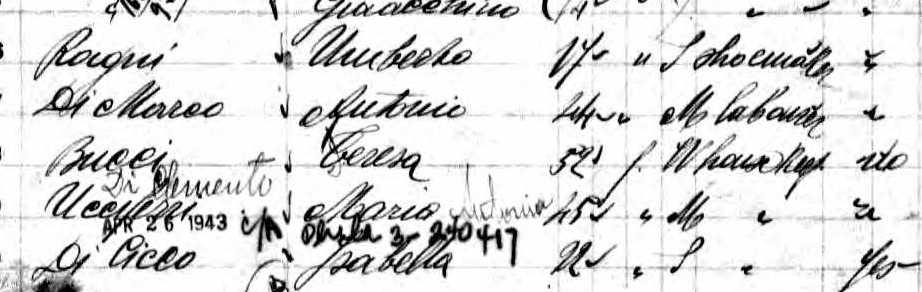 Giacchino
Ragni Umberto 17 " S Shoemaker "
Di Marco Antonio 44 " M labourer "
Bucci Teresa 52 f. W housekeep no
Di Clemente
Maria Antonia 45 " M " "
APR 26 1943 c/A 3-240417
Di Cicco Isabella 22 " S " yes